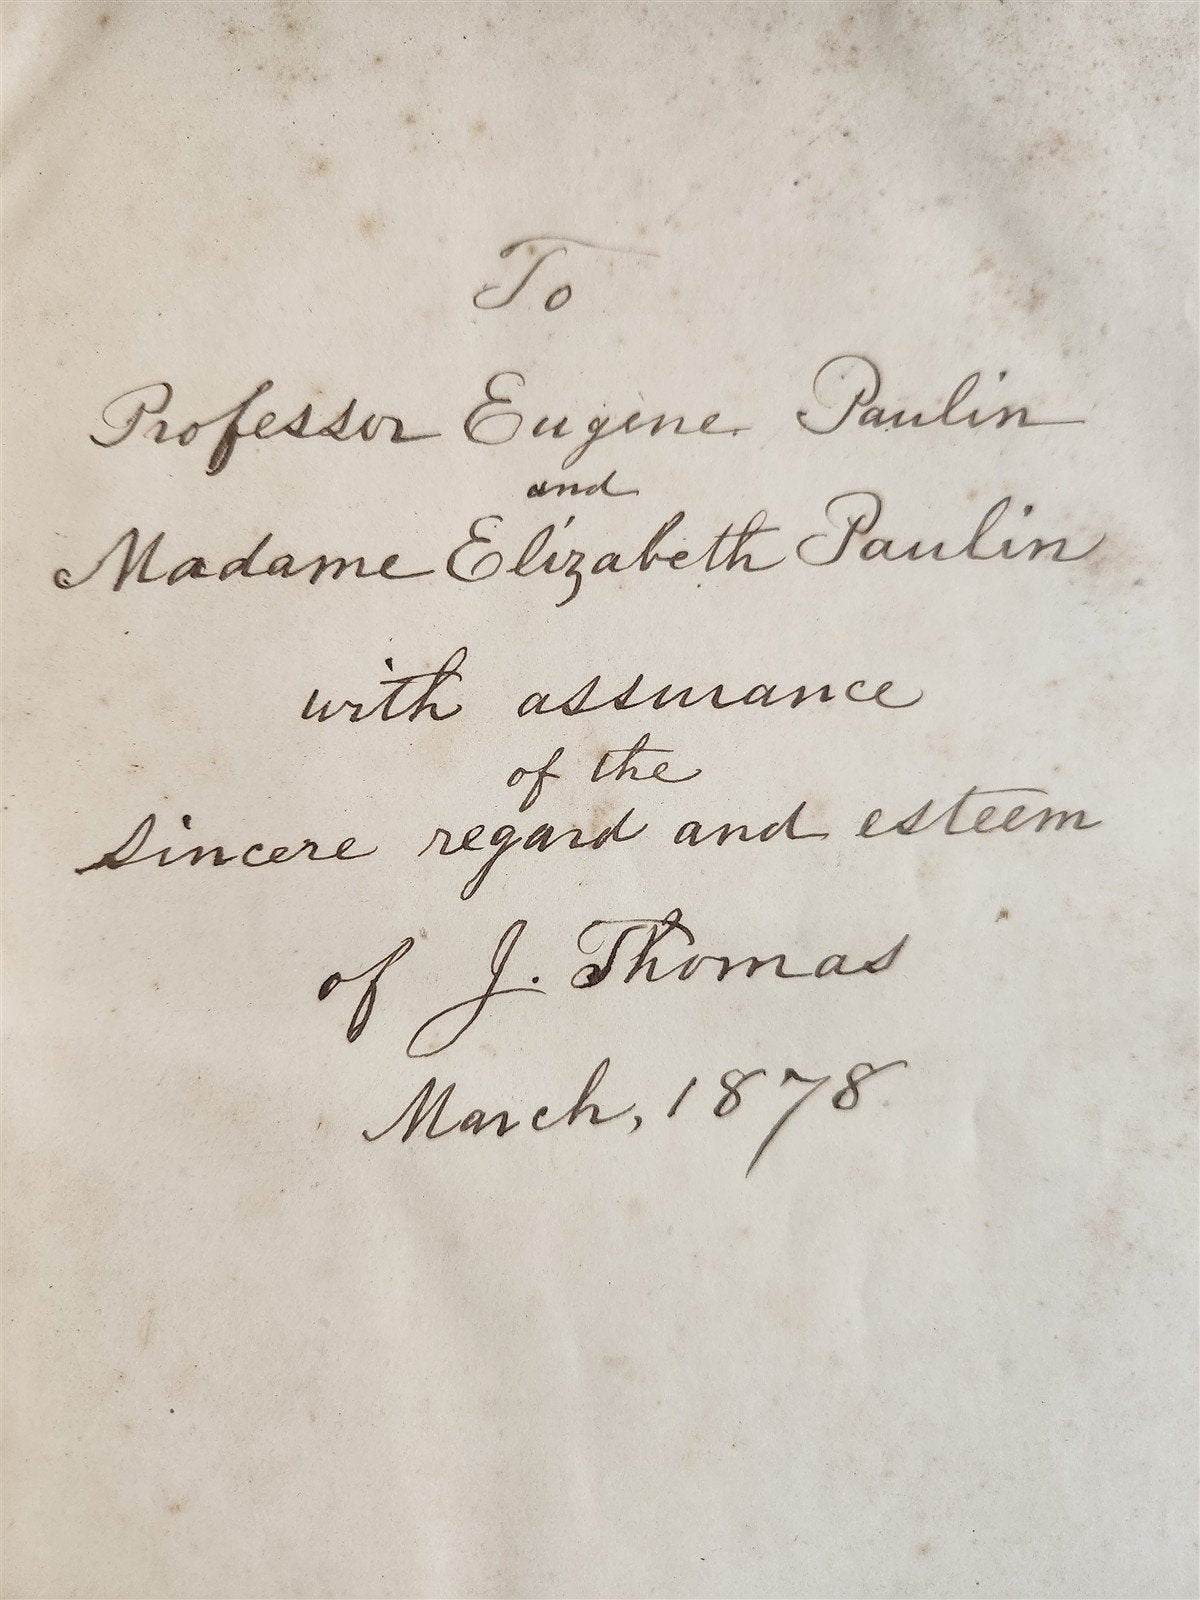 To
Professor Eugene Paulin
and
Madame Elizabeth Paulin
with assurance
of the
sincere regard and esteem
of J. Thomas
March, 1878